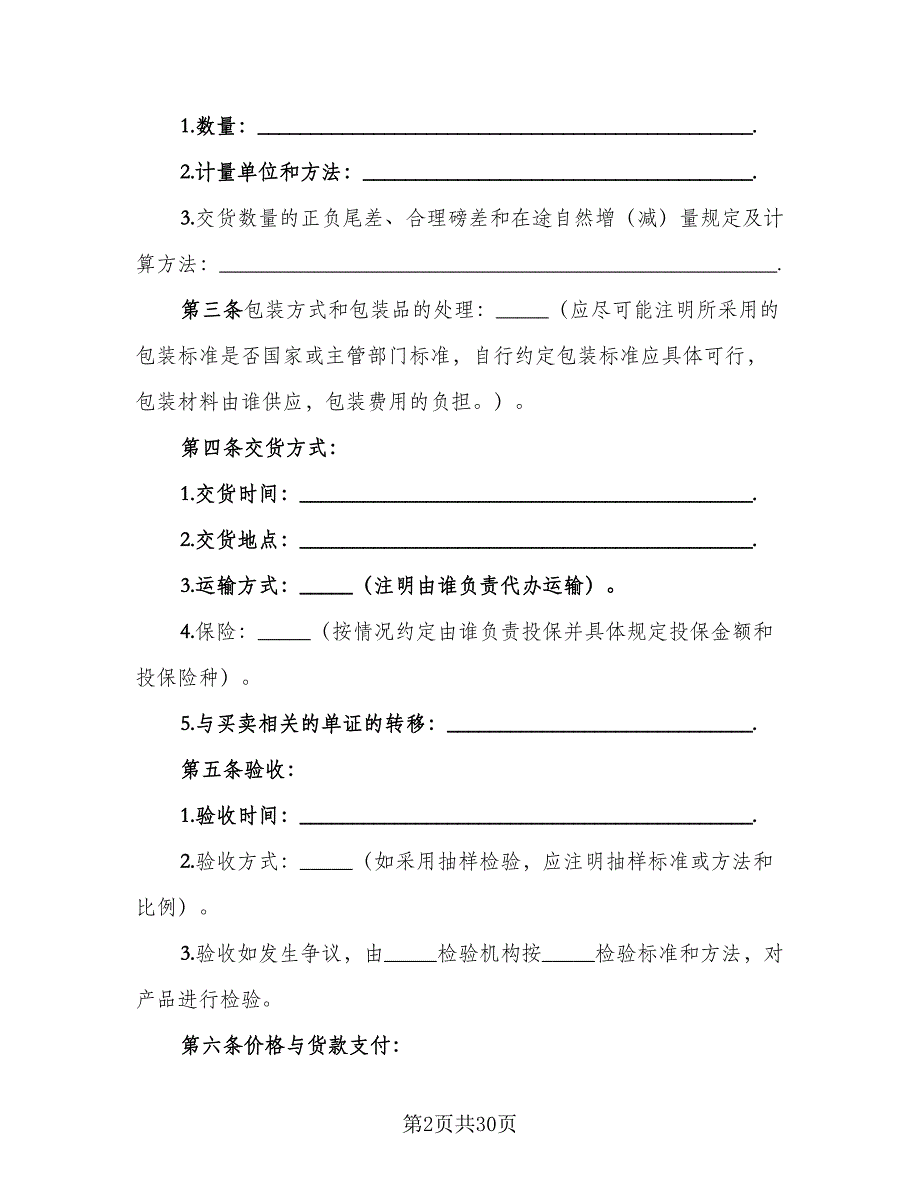 1.数量：_______________________________________________.
2.计量单位和方法：_____________________________________.
3.交货数量的正负尾差、合理磅差和在途自然增（减）量规定及计
算方法：_____________________________________________________.
第三条包装方式和包装品的处理：_____（应尽可能注明所采用的
包装标准是否国家或主管部门标准，自行约定包装标准应具体可行，
包装材料由谁供应，包装费用的负担。）。
第四条交货方式：
1.交货时间：___________________________________________.
2.交货地点：___________________________________________.
3.运输方式：_____（注明由谁负责代办运输）。
4.保险：_____（按情况约定由谁负责投保并具体规定投保金额和
投保险种）。
5.与买卖相关的单证的转移：_____________________________.
第五条验收：
1.验收时间：___________________________________________.
2.验收方式：_____（如采用抽样检验，应注明抽样标准或方法和
比例）。
3.验收如发生争议，由_____检验机构按_____检验标准和方法，对
产品进行检验。
第六条价格与货款支付：
第2页共30页